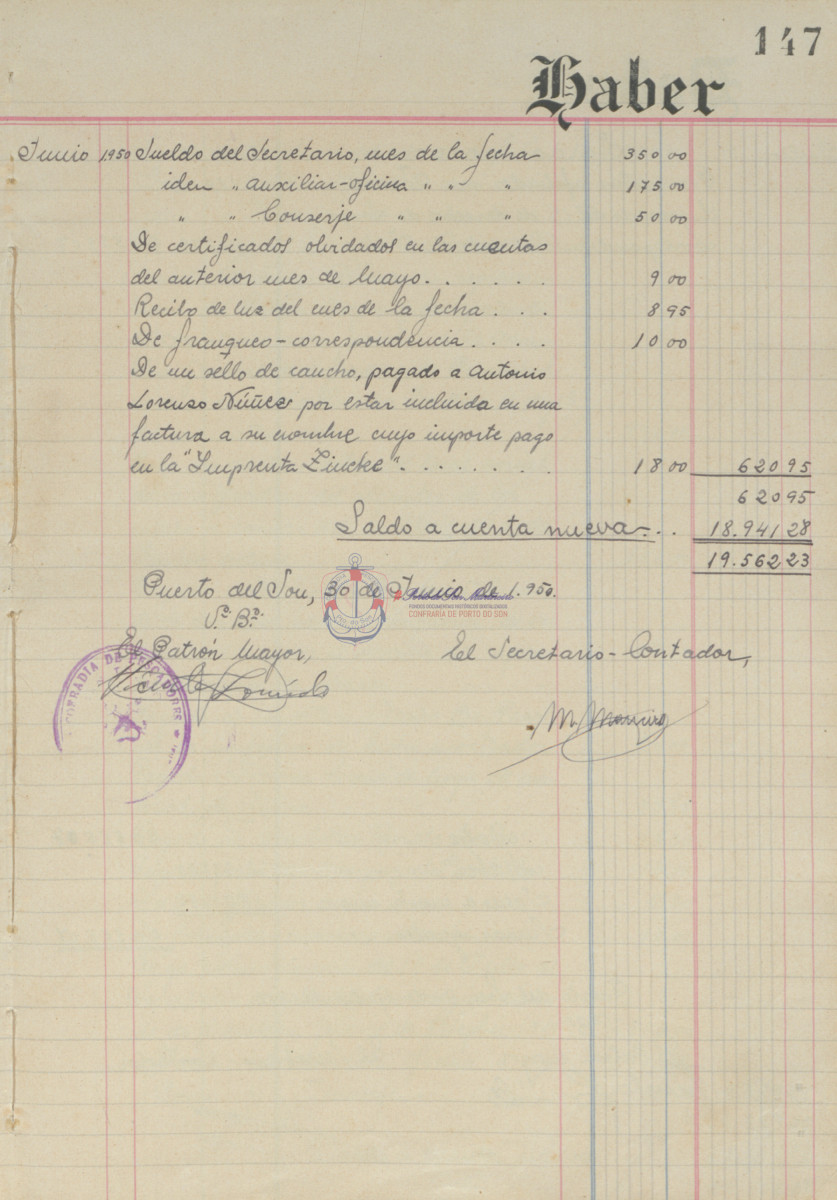 147
Haber
Junio 1950 Sueldo del Secretario, mes de la fecha 350 00
iden " auxiliar-oficina " " " 175 00
" " Conserje " " " 50 00
De certificados olvidados en las cuentas
del anterior mes de Mayo. . . . . . 9 00
Recibo de luz del mes de la fecha . . . 8 95
De franqueo-correspondencia . . . . 10 00
De un sello de caucho, pagado a Antonio
Lorenzo Núñez por estar incluida en una
factura a su nombre cuyo importe pago
en la "Imprenta Zincke". . . . . . . 18 00 620 95
620 95
Saldo a cuenta nueva-. . 18.941 28
19.562 23
Puerto del Son, 30 de Junio de 1.950.
Vº Bº
El Patrón Mayor, El Secretario-Contador,
COFRADIA DE PESCADORES
FONDOS DOCUMENTAIS HISTÓRICOS DIXITALIZADOS
CONFRARÍA DE PORTO DO SON